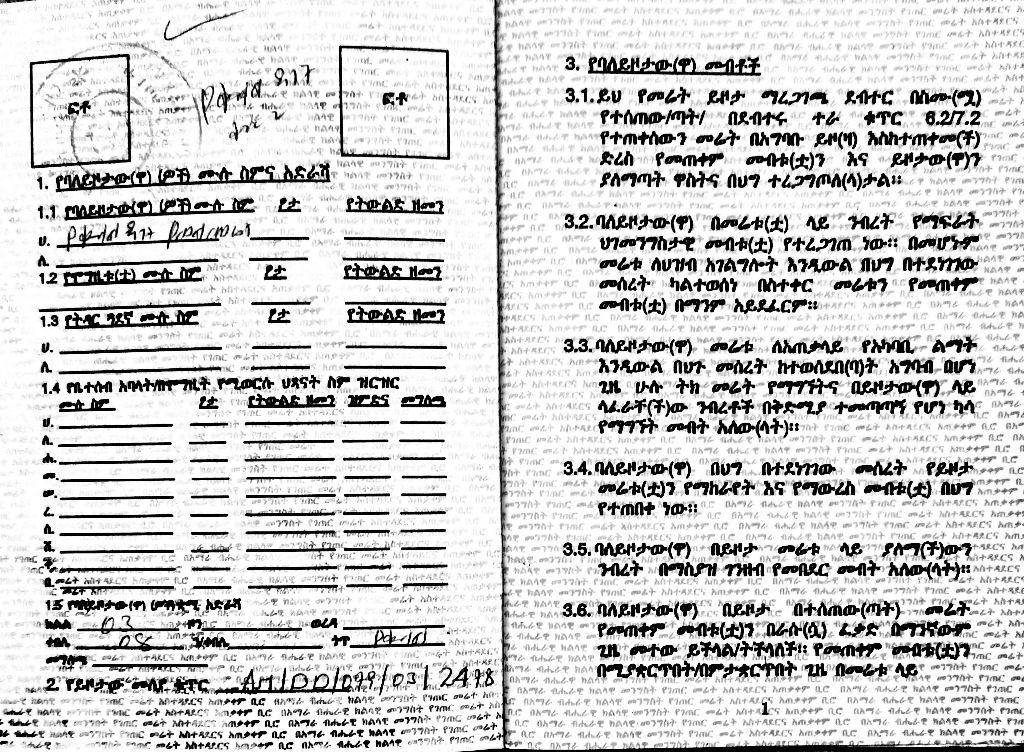 ፎቶ
ፎቶ
1. የባለይዞታው(ዋ) (ዎች) ሙሉ ስምና አድራሻ
1.1 የባለይዞታው(ዋ) (ዎች) ሙሉ ስም ፆታ የትውልድ ዘመን
ሀ.
ለ.
1.2 የሞግዚቱ(ቷ) ሙሉ ስም ፆታ የትውልድ ዘመን
1.3 የትዳር ጓደኛ ሙሉ ስም ፆታ የትውልድ ዘመን
ሀ.
ለ.
1.4 የቤተሰብ አባላት/በሞግዚት የሚወርሱ ህጻናት ስም ዝርዝር
ሙሉ ስም ፆታ የትውልድ ዘመን ዝምድና መግለጫ
ሀ.
ለ.
ሐ.
መ.
ሠ.
ረ.
ሰ.
ሸ.
1.5 የባለይዞታው(ዋ) አድራሻ
ክልል 03 ዞን ወረዳ
ቀበሌ 08
2. የይዞታው መለያ ቁጥር AM/DD/099/03/2498
3. የባለይዞታው(ዋ) መብቶች
3.1. ይህ የመሬት ይዞታ ማረጋገጫ ደብተር በስሙ(ሟ)
የተሰጠው/ጣት/ በደብተሩ ተራ ቁጥር 6.2/7.2
የተጠቀሰውን መሬት በአግባቡ ይዞ(ዛ) እስከተጠቀመ(ች)
ድረስ የመጠቀም መብቱ(ቷ)ን እና ይዞታው(ዋ)ን
ያለማጣት ዋስትና በህግ ተረጋግጦለ(ላ)ታል።
3.2. ባለይዞታው(ዋ) በመሬቱ(ቷ) ላይ ንብረት የማፍራት
ህገመንግስታዊ መብቱ(ቷ) የተረጋገጠ ነው። በመሆኑም
መሬቱ ለህዝብ አገልግሎት እንዲውል በህግ በተደነገገው
መሰረት ካልተወሰነ በስተቀር መሬቱን የመጠቀም
መብቱ(ቷ) በማንም አይደፈርም።
3.3. ባለይዞታው(ዋ) መሬቱ ለአጠቃላይ የአካባቢ ልማት
እንዲውል በህጉ መሰረት ከተወሰደበ(ባ)ት አግባብ በሆነ
ጊዜ ሁሉ ትክ መሬት የማግኘትና በይዞታው(ዋ) ላይ
ላፈራቸ(ች)ው ንብረቶች በቅድሚያ ተመጣጣኝ የሆነ ካሳ
የማግኘት መብት አለው(ላት)።
3.4. ባለይዞታው(ዋ) በህግ በተደነገገው መሰረት የይዞታ
መሬቱ(ቷ)ን የማከራየት እና የማውረስ መብቱ(ቷ) በህግ
የተጠበቀ ነው።
3.5. ባለይዞታው(ዋ) በይዞታ መሬቱ ላይ ያለማ(ች)ውን
ንብረት በማስያዝ ገንዘብ የመበደር መብት አለው(ላት)።
3.6. ባለይዞታው(ዋ) በይዞታ በተሰጠው(ጣት) መሬት
የመጠቀም መብቱ(ቷ)ን በራሱ(ሷ) ፈቃድ በማንኛውም
ጊዜ መተው ይችላል/ትችላለች። የመጠቀም መብቱ(ቷ)ን
በሚያቋርጥበት/በምታቋርጥበት ጊዜ በመሬቱ ላይ
1